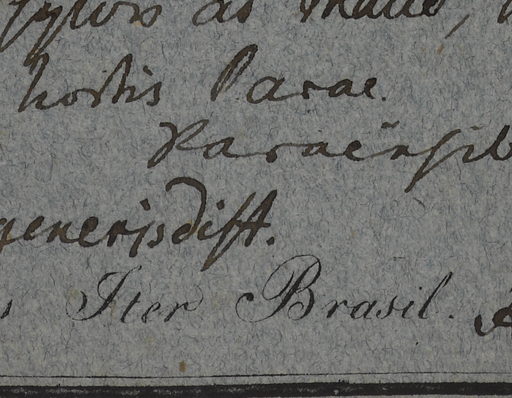 hortis Parae.
Paraënsib
generis dist.
s Iter Brasil.